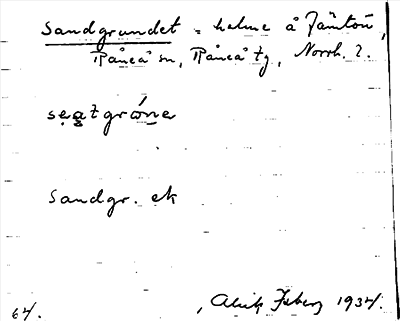 Sandgrundet = holme å Jämtön,
Råneå sn, Råneå tg, Norrb. l.
seatgróne
Sandgr. ek
64. Alrik Isberg 1934.